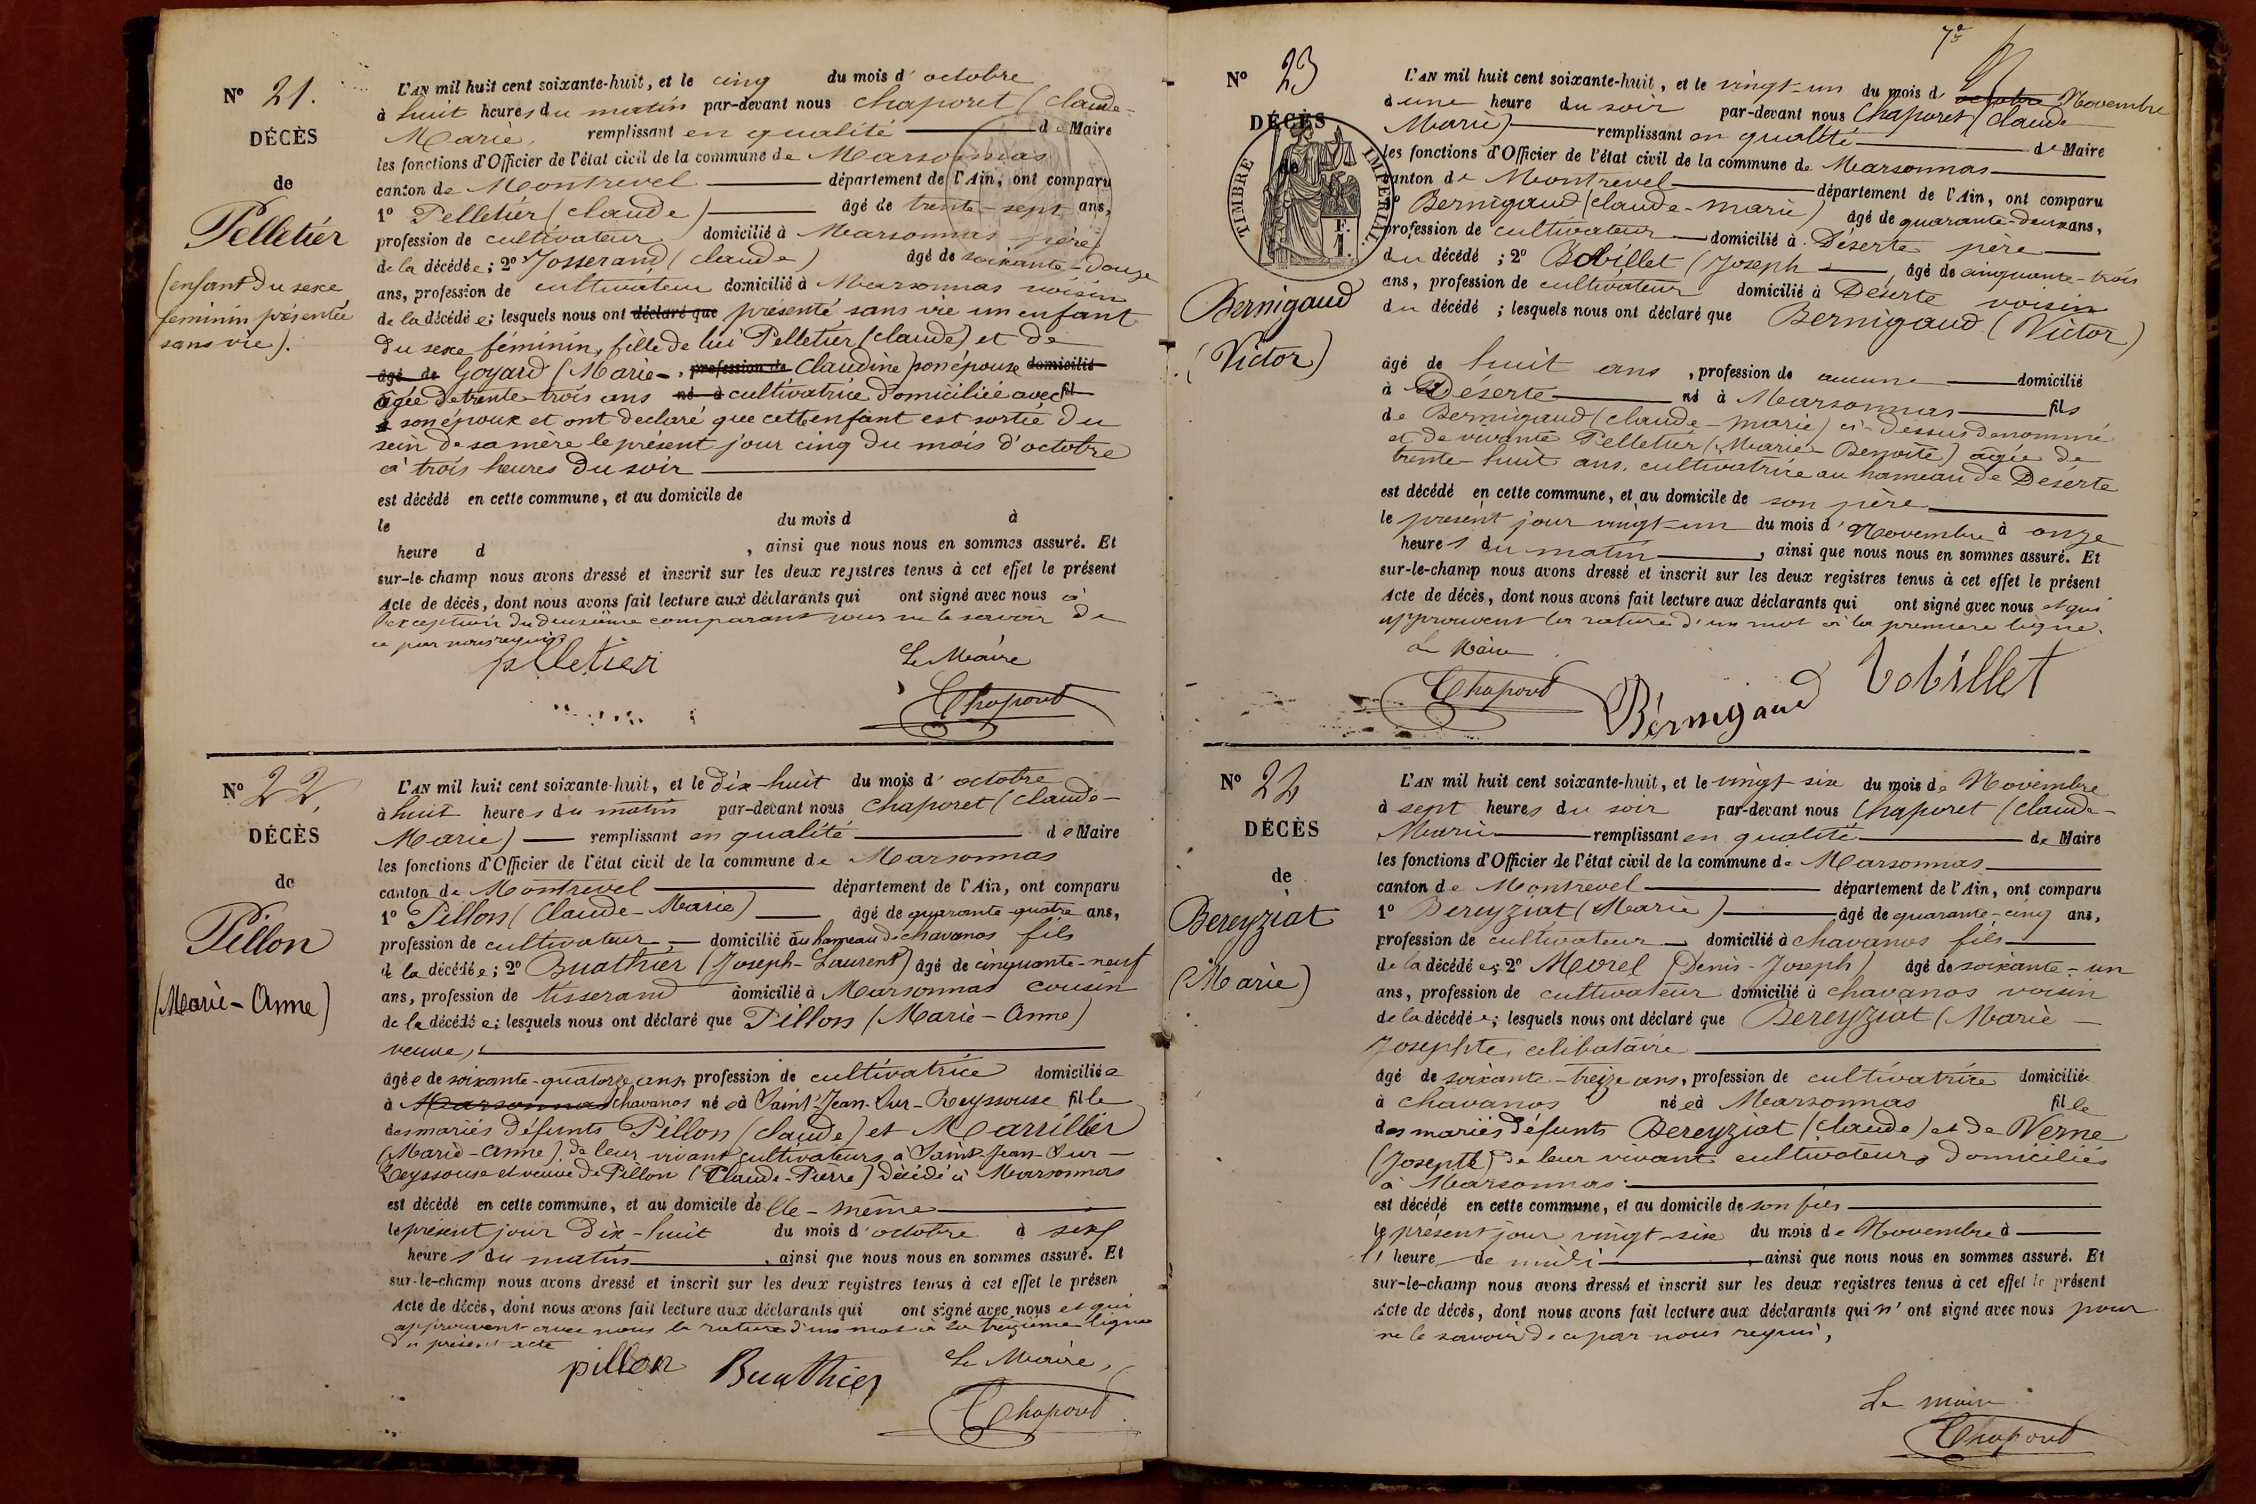 N° 21.
DÉCÈS
de
Pelletier
(enfant du sexe
féminin présentée
sans vie).
L'AN mil huit cent soixante-huit, et le cinq du mois d'octobre
à huit heures du matin par-devant nous Chaporet (Claude-
Marie, remplissant en qualité de Maire
les fonctions d'Officier de l'état civil de la commune de Marsonnas
canton de Montrevel département de l'Ain, ont comparu
1° Pelletier (Claude) âgé de trente-sept ans,
profession de cultivateur domicilié à Marsonnas père
de la décédée; 2° Josserand (Claude) âgé de soixante-douze
ans, profession de cultivateur domicilié à Marsonnas voisin
de la décédée; lesquels nous ont déclaré que présenté sans vie un enfant
du sexe féminin, fille de lui Pelletier (Claude) et de
âgé de Goyard (Marie-, profession de Claudine) son épouse domicilié
âgée de trente-trois ans né à cultivatrice domiciliée avec fil
à son époux et ont déclaré que cette enfant est sortie du
sein de sa mère le présent jour cinq du mois d'octobre
à trois heures du soir
est décédé en cette commune, et au domicile de
le du mois d à
heure d , ainsi que nous nous en sommes assuré. Et
sur-le-champ nous avons dressé et inscrit sur les deux registres tenus à cet effet le présent
Acte de décès, dont nous avons fait lecture aux déclarants qui ont signé avec nous à
l'exception du deuxième comparant pour ne le savoir de
ce par nous requis
pelletier Le Maire
Chaporet
N° 22.
DÉCÈS
de
Pillon
(Marie-Anne)
L'AN mil huit cent soixante-huit, et le dix-huit du mois d'octobre
à huit heures du matin par-devant nous Chaporet (Claude-
Marie) remplissant en qualité de Maire
les fonctions d'Officier de l'état civil de la commune de Marsonnas
canton de Montrevel département de l'Ain, ont comparu
1° Pillon (Claude-Marie) âgé de quarante-quatre ans,
profession de cultivateur domicilié au hameau de chavanos fils
de la décédée; 2° Buathier (Joseph-Laurent) âgé de cinquante-neuf
ans, profession de tisserand domicilié à Marsonnas cousin
de la décédée; lesquels nous ont déclaré que Pillon (Marie-Anne)
veuve,
âgée de soixante-quatorze ans, profession de cultivatrice domiciliée
à Marsonnas chavanos née à Saint-Jean-Sur-Reyssouse fille
des mariés défunts Pillon (Claude) et Marillier
(Marie-Anne) de leur vivant cultivateurs à Saint-Jean-Sur-
Reyssouse et veuve de Pillon (Claude-Pierre) décédé à Marsonnas
est décédé en cette commune, et au domicile de elle-même
le présent jour dix-huit du mois d'octobre à six
heures du matin, ainsi que nous nous en sommes assuré. Et
sur-le-champ nous avons dressé et inscrit sur les deux registres tenus à cet effet le présen
Acte de décès, dont nous avons fait lecture aux déclarants qui ont signé avec nous et qui
approuvent avec nous la rature d'un mot à la treizième ligne
du présent acte
pillon Buathier Le Maire,
Chaporet
7e
N° 23
DÉCÈS
de
TIMBRE IMPÉRIAL
Bernigaud
(Victor)
L'AN mil huit cent soixante-huit, et le vingt-un du mois d octobre Novembre
à une heure du soir par-devant nous Chaporet (Claude
Marie) remplissant en qualité de Maire
les fonctions d'Officier de l'état civil de la commune de Marsonnas
canton de Montrevel département de l'Ain, ont comparu
1° Bernigaud (Claude-Marie) âgé de quarante-deux ans,
profession de cultivateur domicilié à Déserte père
du décédé; 2° Bobillet (Joseph âgé de cinquante-trois
ans, profession de cultivateur domicilié à Déserte voisin
du décédé; lesquels nous ont déclaré que Bernigaud (Victor)
âgé de huit ans, profession de aucune domicilié
à Déserte né à Marsonnas fils
de Bernigaud (Claude-Marie) ci-dessus denommé
et de vivante Pelletier (Marie-Benoite) agée de
trente-huit ans, cultivatrice au hameau de Déserte
est décédé en cette commune, et au domicile de son père
le présent jour vingt-un du mois d'Novembre à onze
heures du matin, ainsi que nous nous en sommes assuré. Et
sur-le-champ nous avons dressé et inscrit sur les deux registres tenus à cet effet le présent
Acte de décès, dont nous avons fait lecture aux déclarants qui ont signé avec nous et qui
approuvent la rature d'un mot à la première ligne.
Le Maire
Chaporet Bernigaud bobillet
N° 24
DÉCÈS
de
Bereyziat
(Marie)
L'AN mil huit cent soixante-huit, et le vingt-six du mois de Novembre
à sept heures du soir par-devant nous Chaporet (Claude-
Marie remplissant en qualité de Maire
les fonctions d'Officier de l'état civil de la commune de Marsonnas
canton de Montrevel département de l'Ain, ont comparu
1° Bereyziat (Marie) âgé de quarante-cinq ans,
profession de cultivateur domicilié à chavanos fils
de la décédée; 2° Morel (Denis-Joseph) âgé de soixante-un
ans, profession de cultivateur domicilié à chavanos voisin
de la décédée; lesquels nous ont déclaré que Bereyziat (Marie-
Josephte, célibataire
âgé de soixante-treize ans, profession de cultivatrice domiciliée
à chavanos née à Marsonnas fille
des mariés défunts Bereyziat (Claude) et de Verne
(Josephte) de leur vivant cultivateurs domiciliés
à Marsonnas
est décédé en cette commune, et au domicile de son fils
le présent jour vingt-six du mois de Novembre à
l'heure de midi, ainsi que nous nous en sommes assuré. Et
sur-le-champ nous avons dressé et inscrit sur les deux registres tenus à cet effet le présent
Acte de décès, dont nous avons fait lecture aux déclarants qui n'ont signé avec nous pour
ne le savoir de ce par nous requis,
Le maire
Chaporet